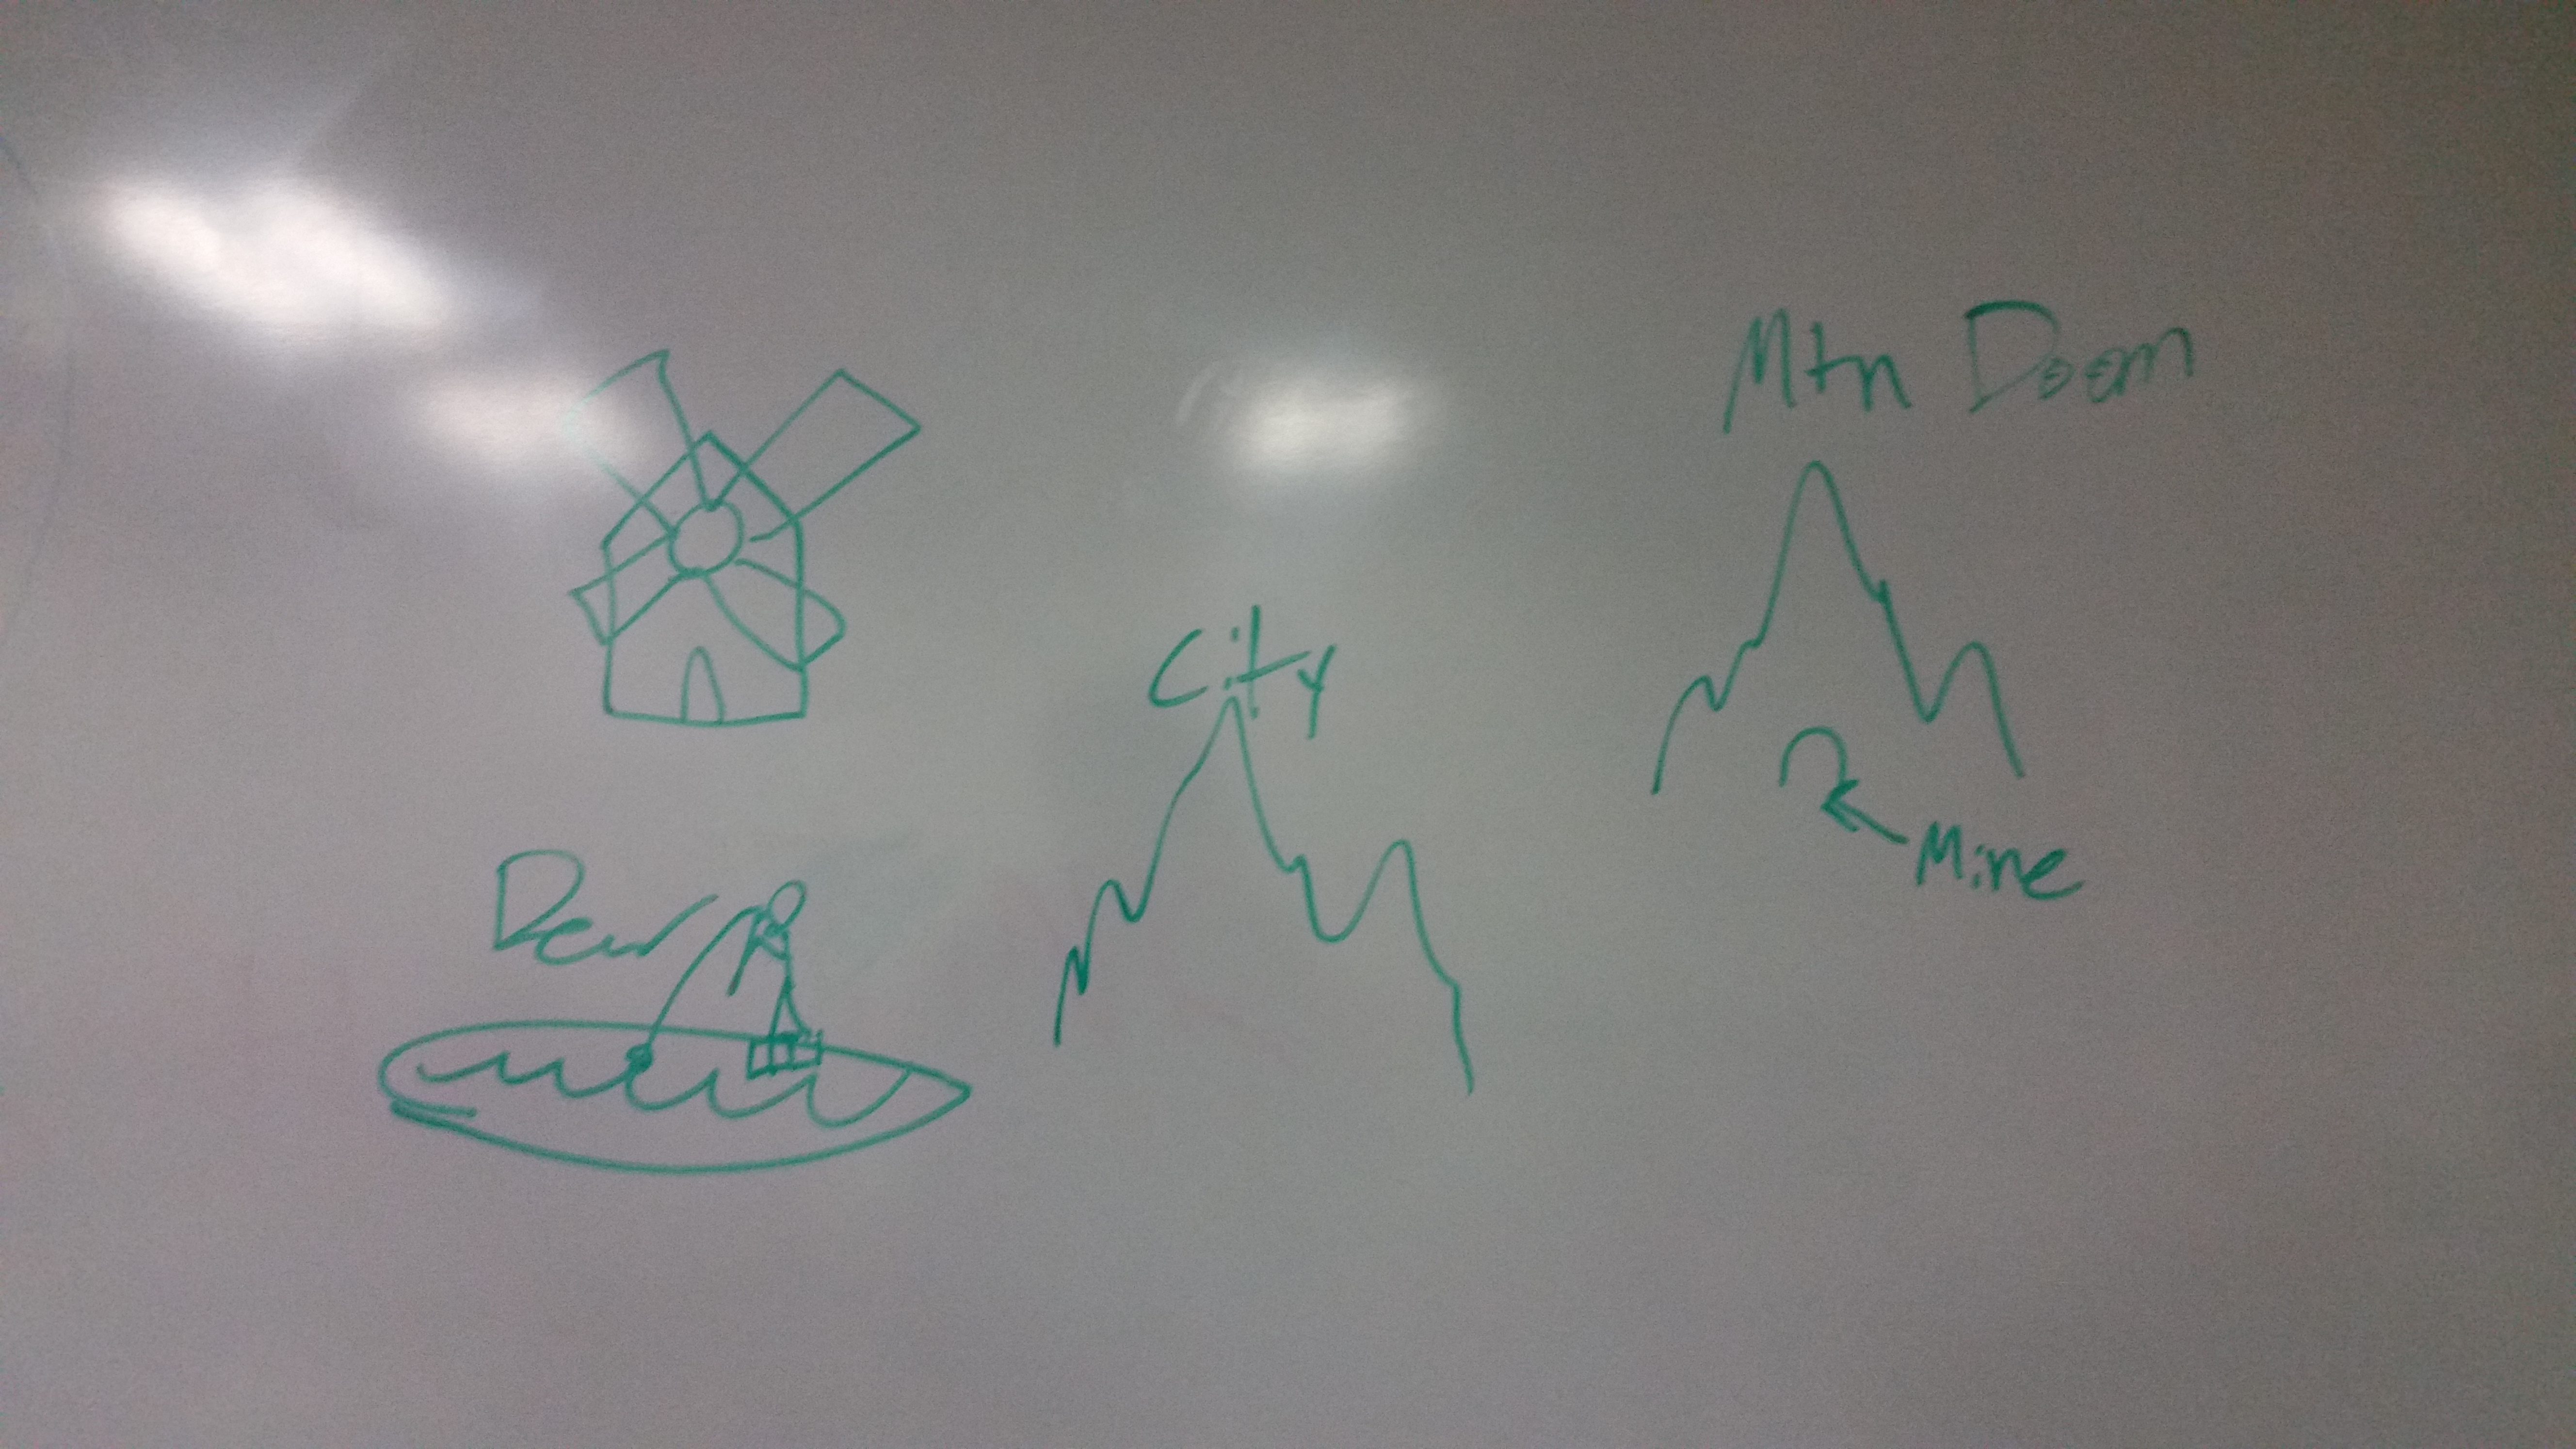 Mtn Doom
City
Mine